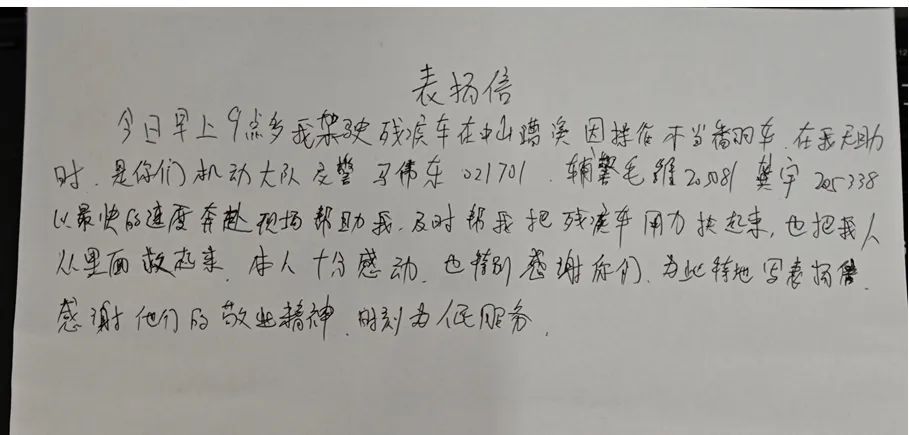 表扬信
今日早上9点多我架驶残疾车在中山漕溪因操作不当番了车.在我无助
时.是你们机动大队交警马伟东021701.辅警毛雒205081龚宇205338
以最快的速度奔赴现场帮助我.及时帮我把残疾车用力扶起来,也把我人
从里面救起来.本人十分感动.也特别感谢你们.为此特地写表扬信.
感谢他们的敬业精神.时刻为人民服务.